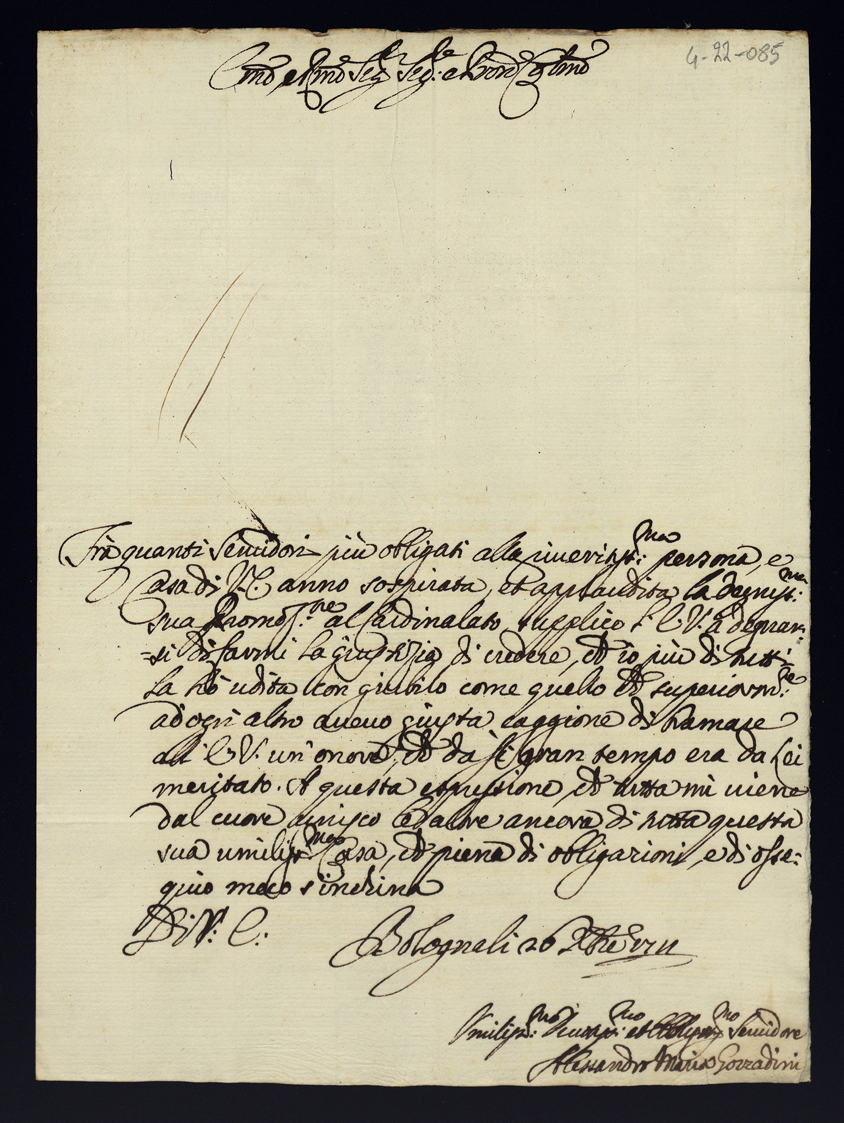 4-22-085
Em̃o e Rm̃o Sig.r Sig.e e Pron Col̃mo
Frà quanti Servidori più obligati alla riveritiss:ma persona, e
Casa di V.E. anno sospirata, et applaudita la degniss:ma
sua Promoz:ne al Cardinalato, supplico l'E.V. à degnar-
-si di farmi la giustizia di credere, che io più di tutti
la hò udita con giubilo come quello che superiorm:te
ad ogn'altro avevo giusta caggione di bramare
all'E.V. un'onore, che da sì gran tempo era da Lei
meritato. A questa espressione, che tutta mi viene
dal cuore unisco le altre ancora di tutta questa
sua umiliss:ma Casa, che piena di obligazioni, e di osse-
quio meco s'inchina
Di V: E:
Bologna li 26 Xbre 1711
Umiliss:mo Devotiss:mo et Obligat:mo Servidore
Alessandro Maria Gozzadini